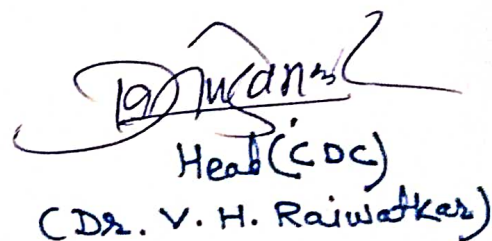 Head (CDC)
(Dr. V. H. Raiwatkar)